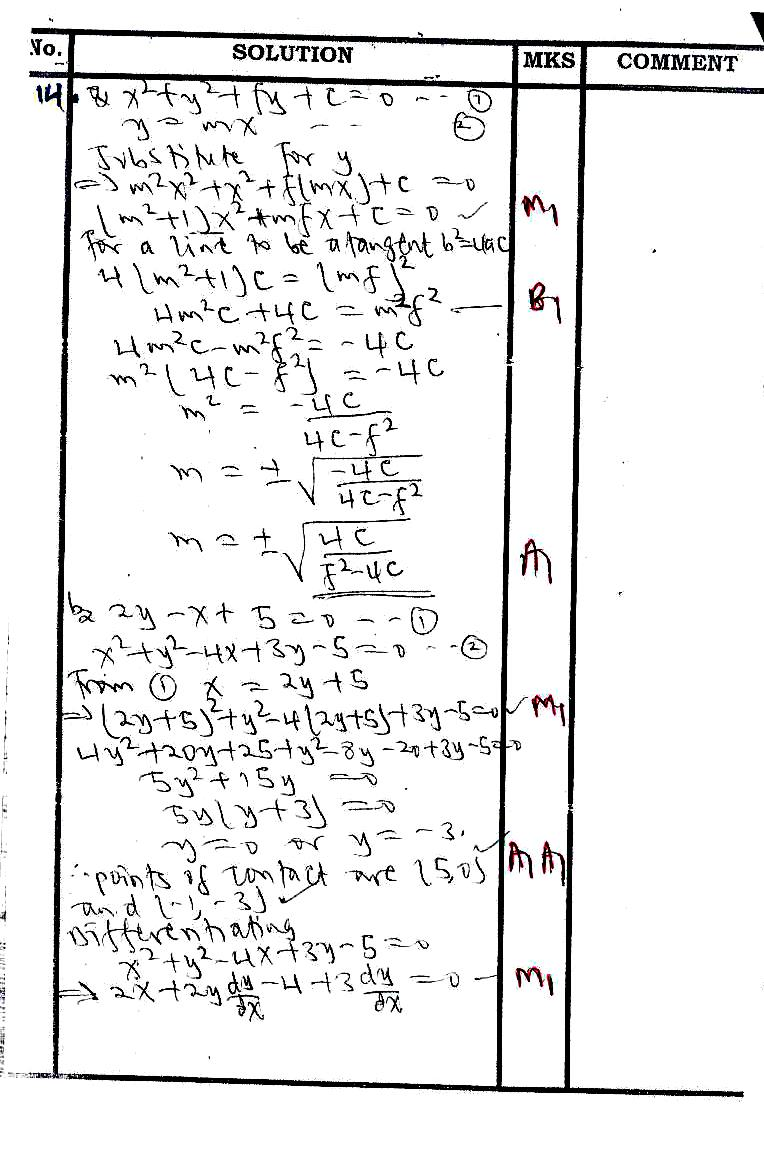 No. SOLUTION MKS COMMENT
14. a x²+y²+fy+c=0 -- ①
y = mx -- ②
Substitute for y
=> m²x²+x²+f(mx)+c =0
(m²+1)x²+mfx+c=0 ✓ M1
for a line to be a tangent b²=4ac
4(m²+1)c = (mf)²
4m²c+4c = m²f² — B1
4m²c-m²f² = -4c
m²(4c-f²) = -4c
m² = -4c/(4c-f²)
m = ±√(-4c/(4c-f²))
m = ±√(4c/(f²-4c)) A1
b 2y-x+5=0 --①
x²+y²-4x+3y-5=0 --②
From ① x = 2y+5
=> (2y+5)²+y²-4(2y+5)+3y-5=0 ✓ M1
4y²+20y+25+y²-8y-20+3y-5=0
5y²+15y =0
5y(y+3) =0
y=0 or y=-3. ✓
∴ points of contact are (5,0) A1 A1
and (-1,-3) ✓
Differentiating
x²+y²-4x+3y-5=0
=> 2x+2y dy/dx -4+3 dy/dx =0 — M1